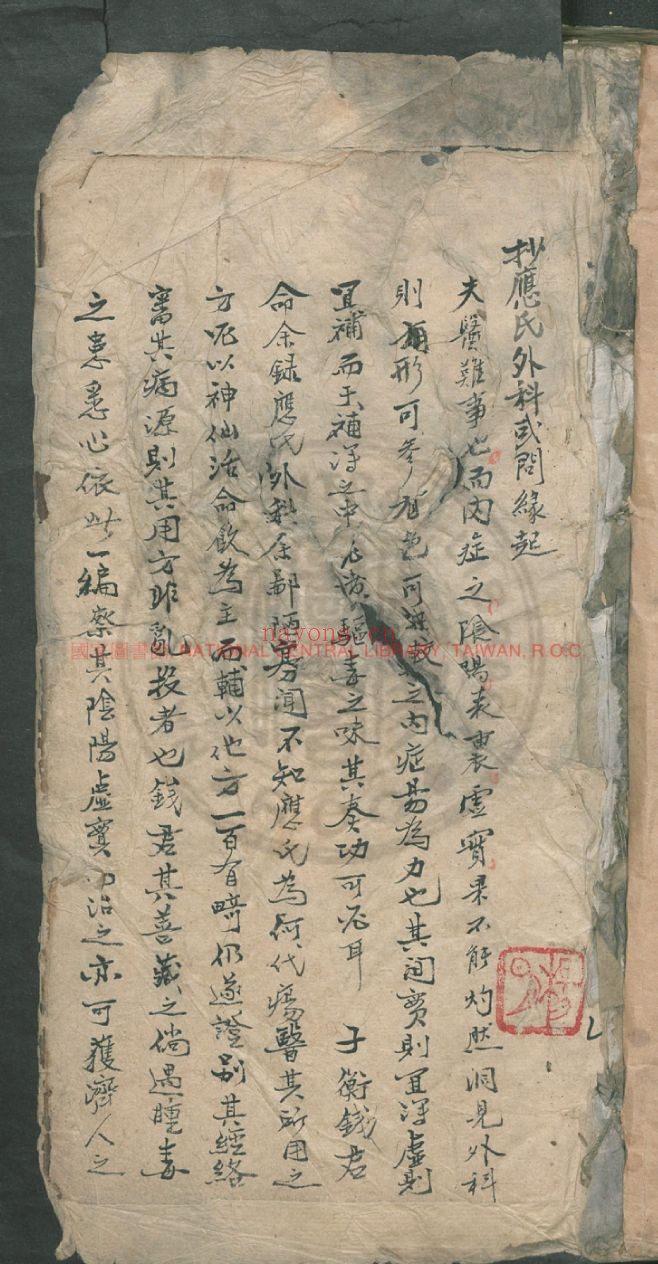 抄應氏外科或問緣起
夫醫難事也而內症之陰陽表裏虛實果不能灼然洞見外科
則有形可參有色可並較之內症易為力也其間實則宜瀉虛則
宜補而于補瀉之中佐潰驅毒之味其奏功可必耳 子衡錢君
命余錄應氏外科余鄙陋寡聞不知應氏為何代瘍醫其所用之
方呢以神仙活命飲為主而輔以他方一百有畸仍遂證別其經絡
審其病源則其用方非亂投者也錢君其善藏之倘遇腫毒
之患悉心依此一編察其陰陽虛實而治之亦可獲濟人之
nayona.cn
國家圖書館 NATIONAL CENTRAL LIBRARY, TAIWAN, R.O.C.